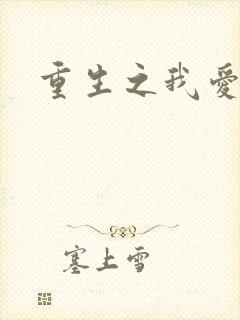 重生之我愛
塞上雪